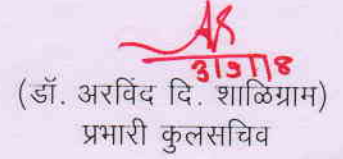 3/9/18
(डॉ. अरविंद दि. शाळिग्राम)
प्रभारी कुलसचिव